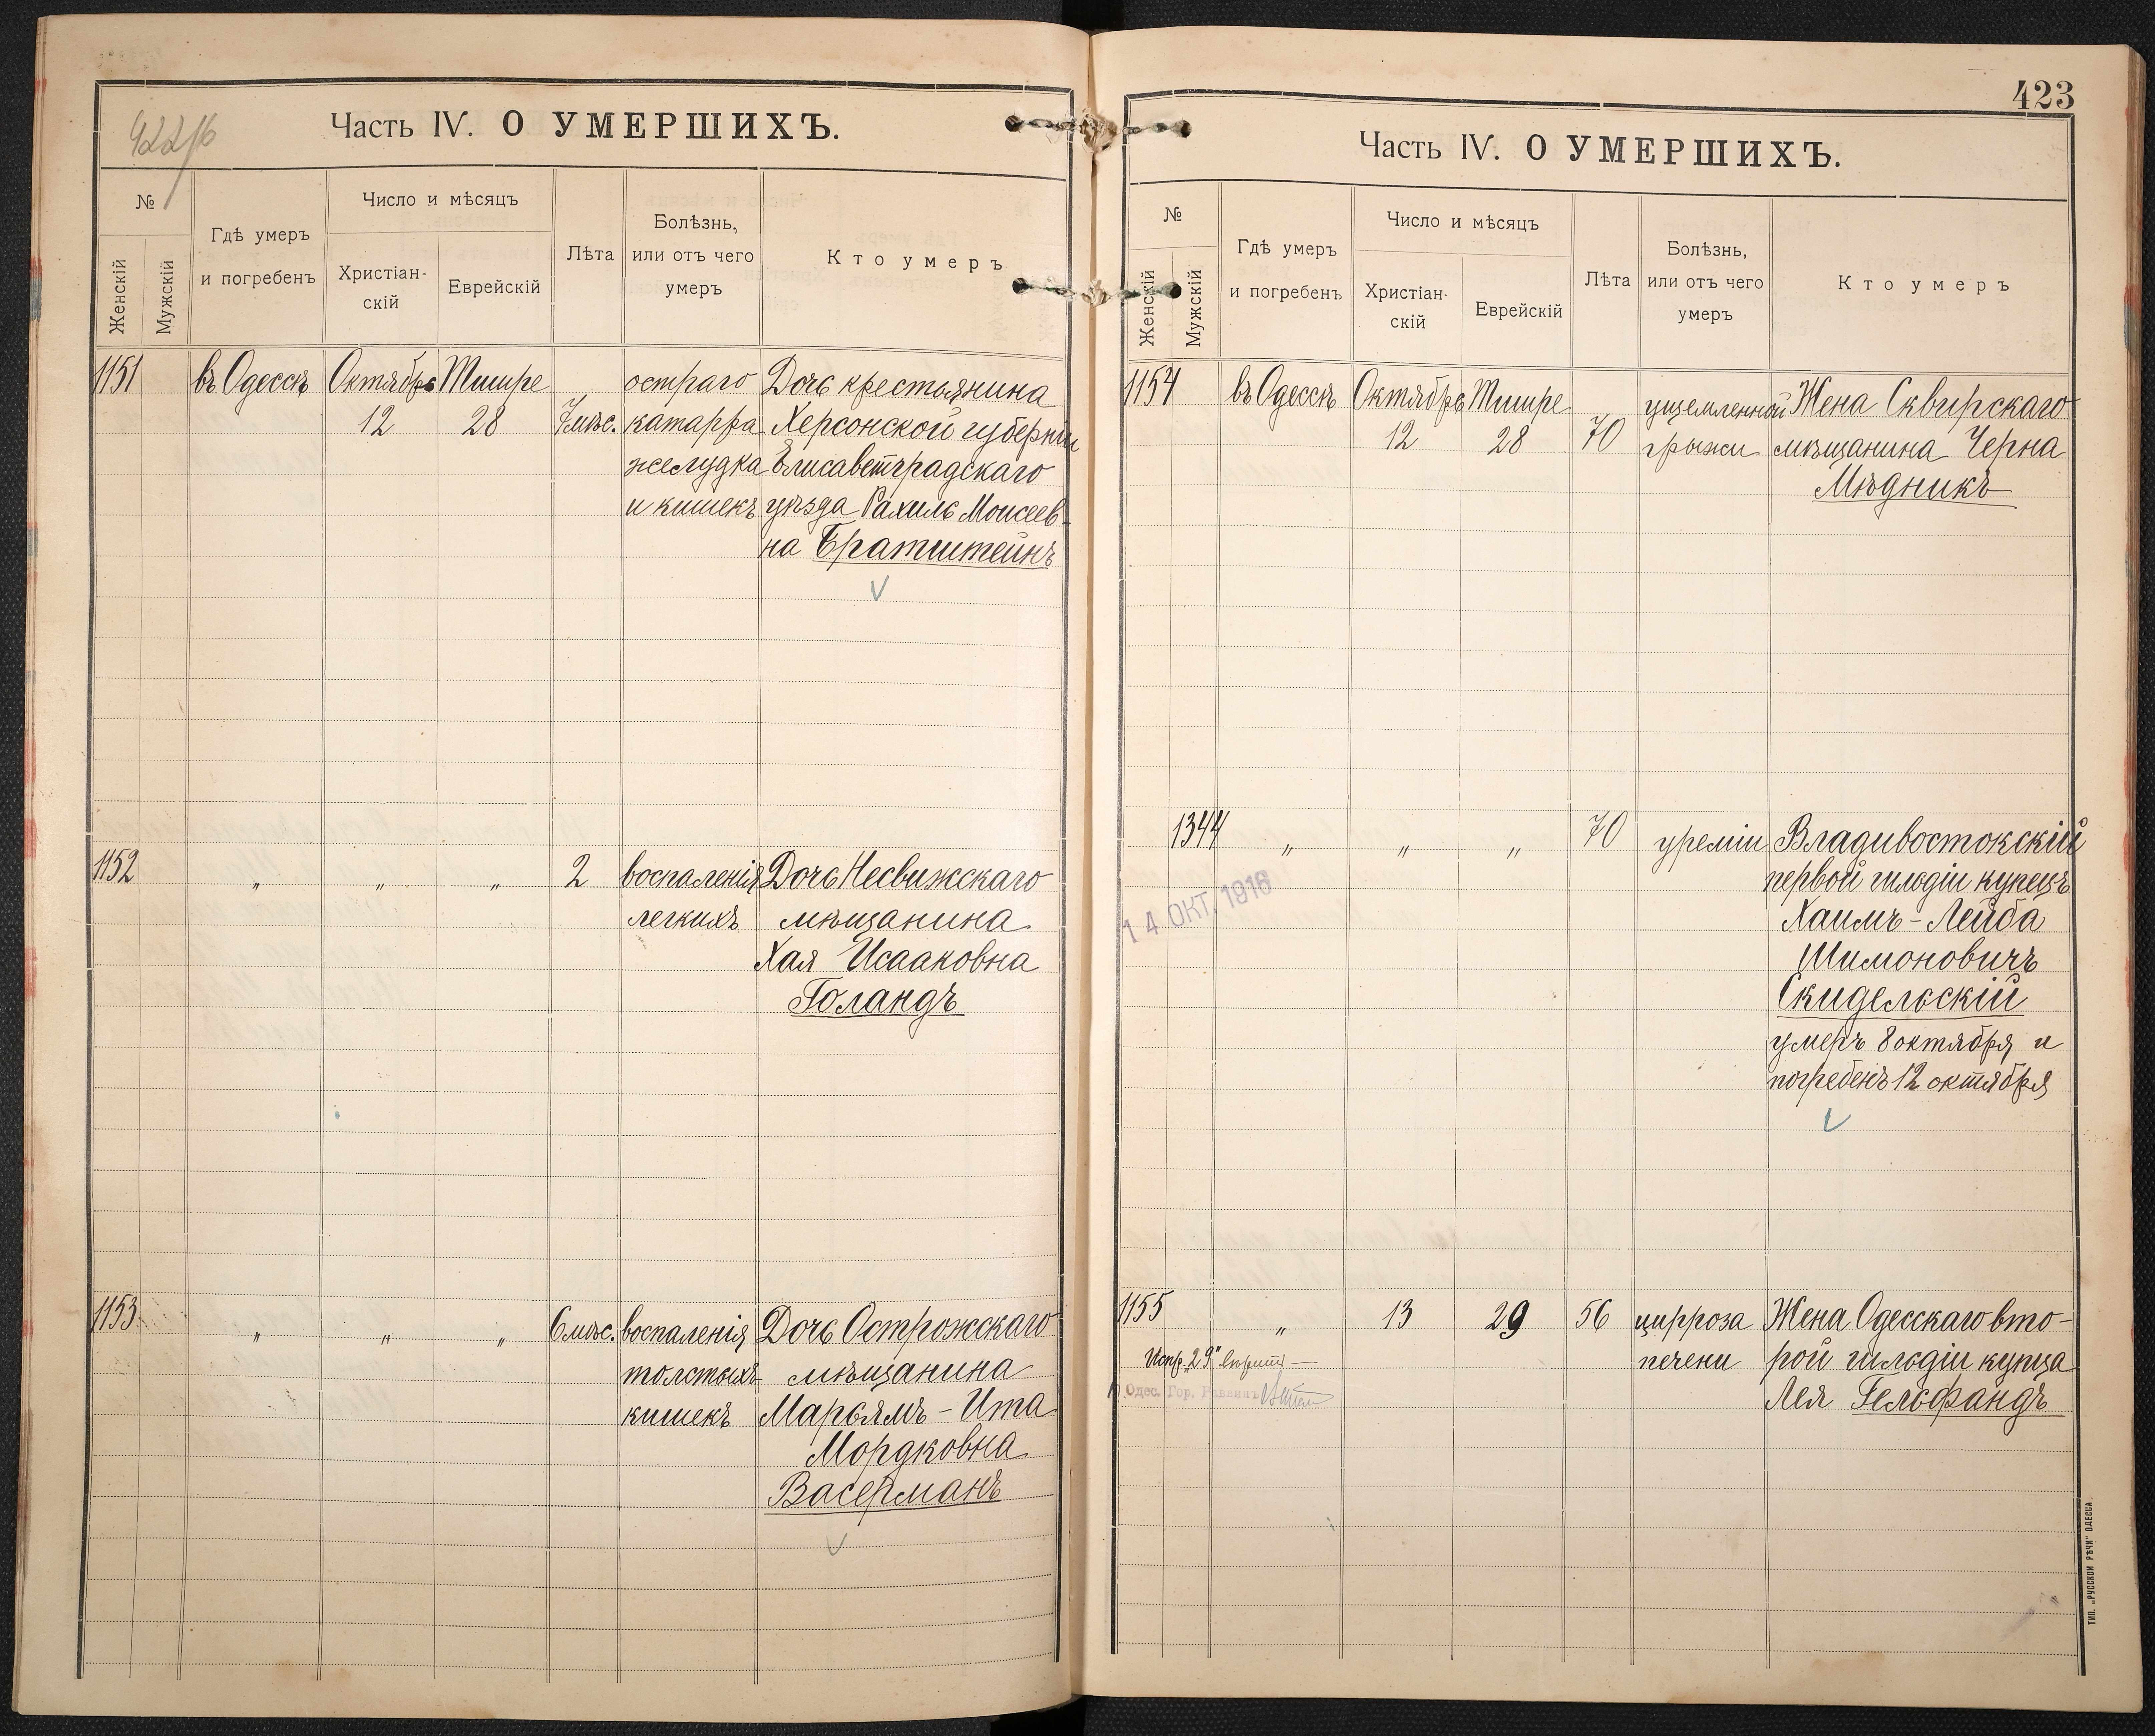 422/б
Часть IV. О УМЕРШИХЪ.
№
Женскій
Мужскій
Гдѣ умеръ
и погребенъ
Число и мѣсяцъ
Христіан-
скій
Еврейскій
Лѣта
Болѣзнь,
или отъ чего
умеръ
Кто умеръ
1151 въ Одессѣ Октябрь Тишре остраго Дочь крестьянина
12 28 7 мѣс. катарра Херсонской губерніи
желудка Елисаветградскаго
и кишекъ уѣзда Рахиль Моисеев-
на Братштейнъ
1152 " " " 2 воспаленія Дочь Несвижскаго
легкихъ мѣщанина
Хая Исааковна
Голандъ
1153 " " " 6 мѣс. воспаленія Дочь Острожскаго
толстыхъ мѣщанина
кишекъ Марьямъ-Ита
Мордковна
Васерманъ
423
Часть IV. О УМЕРШИХЪ.
№
Женскій
Мужскій
Гдѣ умеръ
и погребенъ
Число и мѣсяцъ
Христіан-
скій
Еврейскій
Лѣта
Болѣзнь,
или отъ чего
умеръ
Кто умеръ
1154 въ Одессѣ Октябрь Тишре ущемленной Жена Сквирскаго
12 28 70 грыжи мѣщанина Черна
Мѣдникъ
1344 " " " 70 уреміи Владивостокскій
первой гильдіи купецъ
14 ОКТ. 1916
Хаимъ-Лейба
Шимоновичъ
Скидельскій
умеръ 8 октября и
погребенъ 12 октября
1155 " 13 29 56 цирроза Жена Одесскаго вто-
Испр. "29" печени рой гильдіи купца
Одес. Гор. Раввинъ Лея Гельфандъ
ТИП. „РУССКОЙ РѢЧИ" ОДЕССА